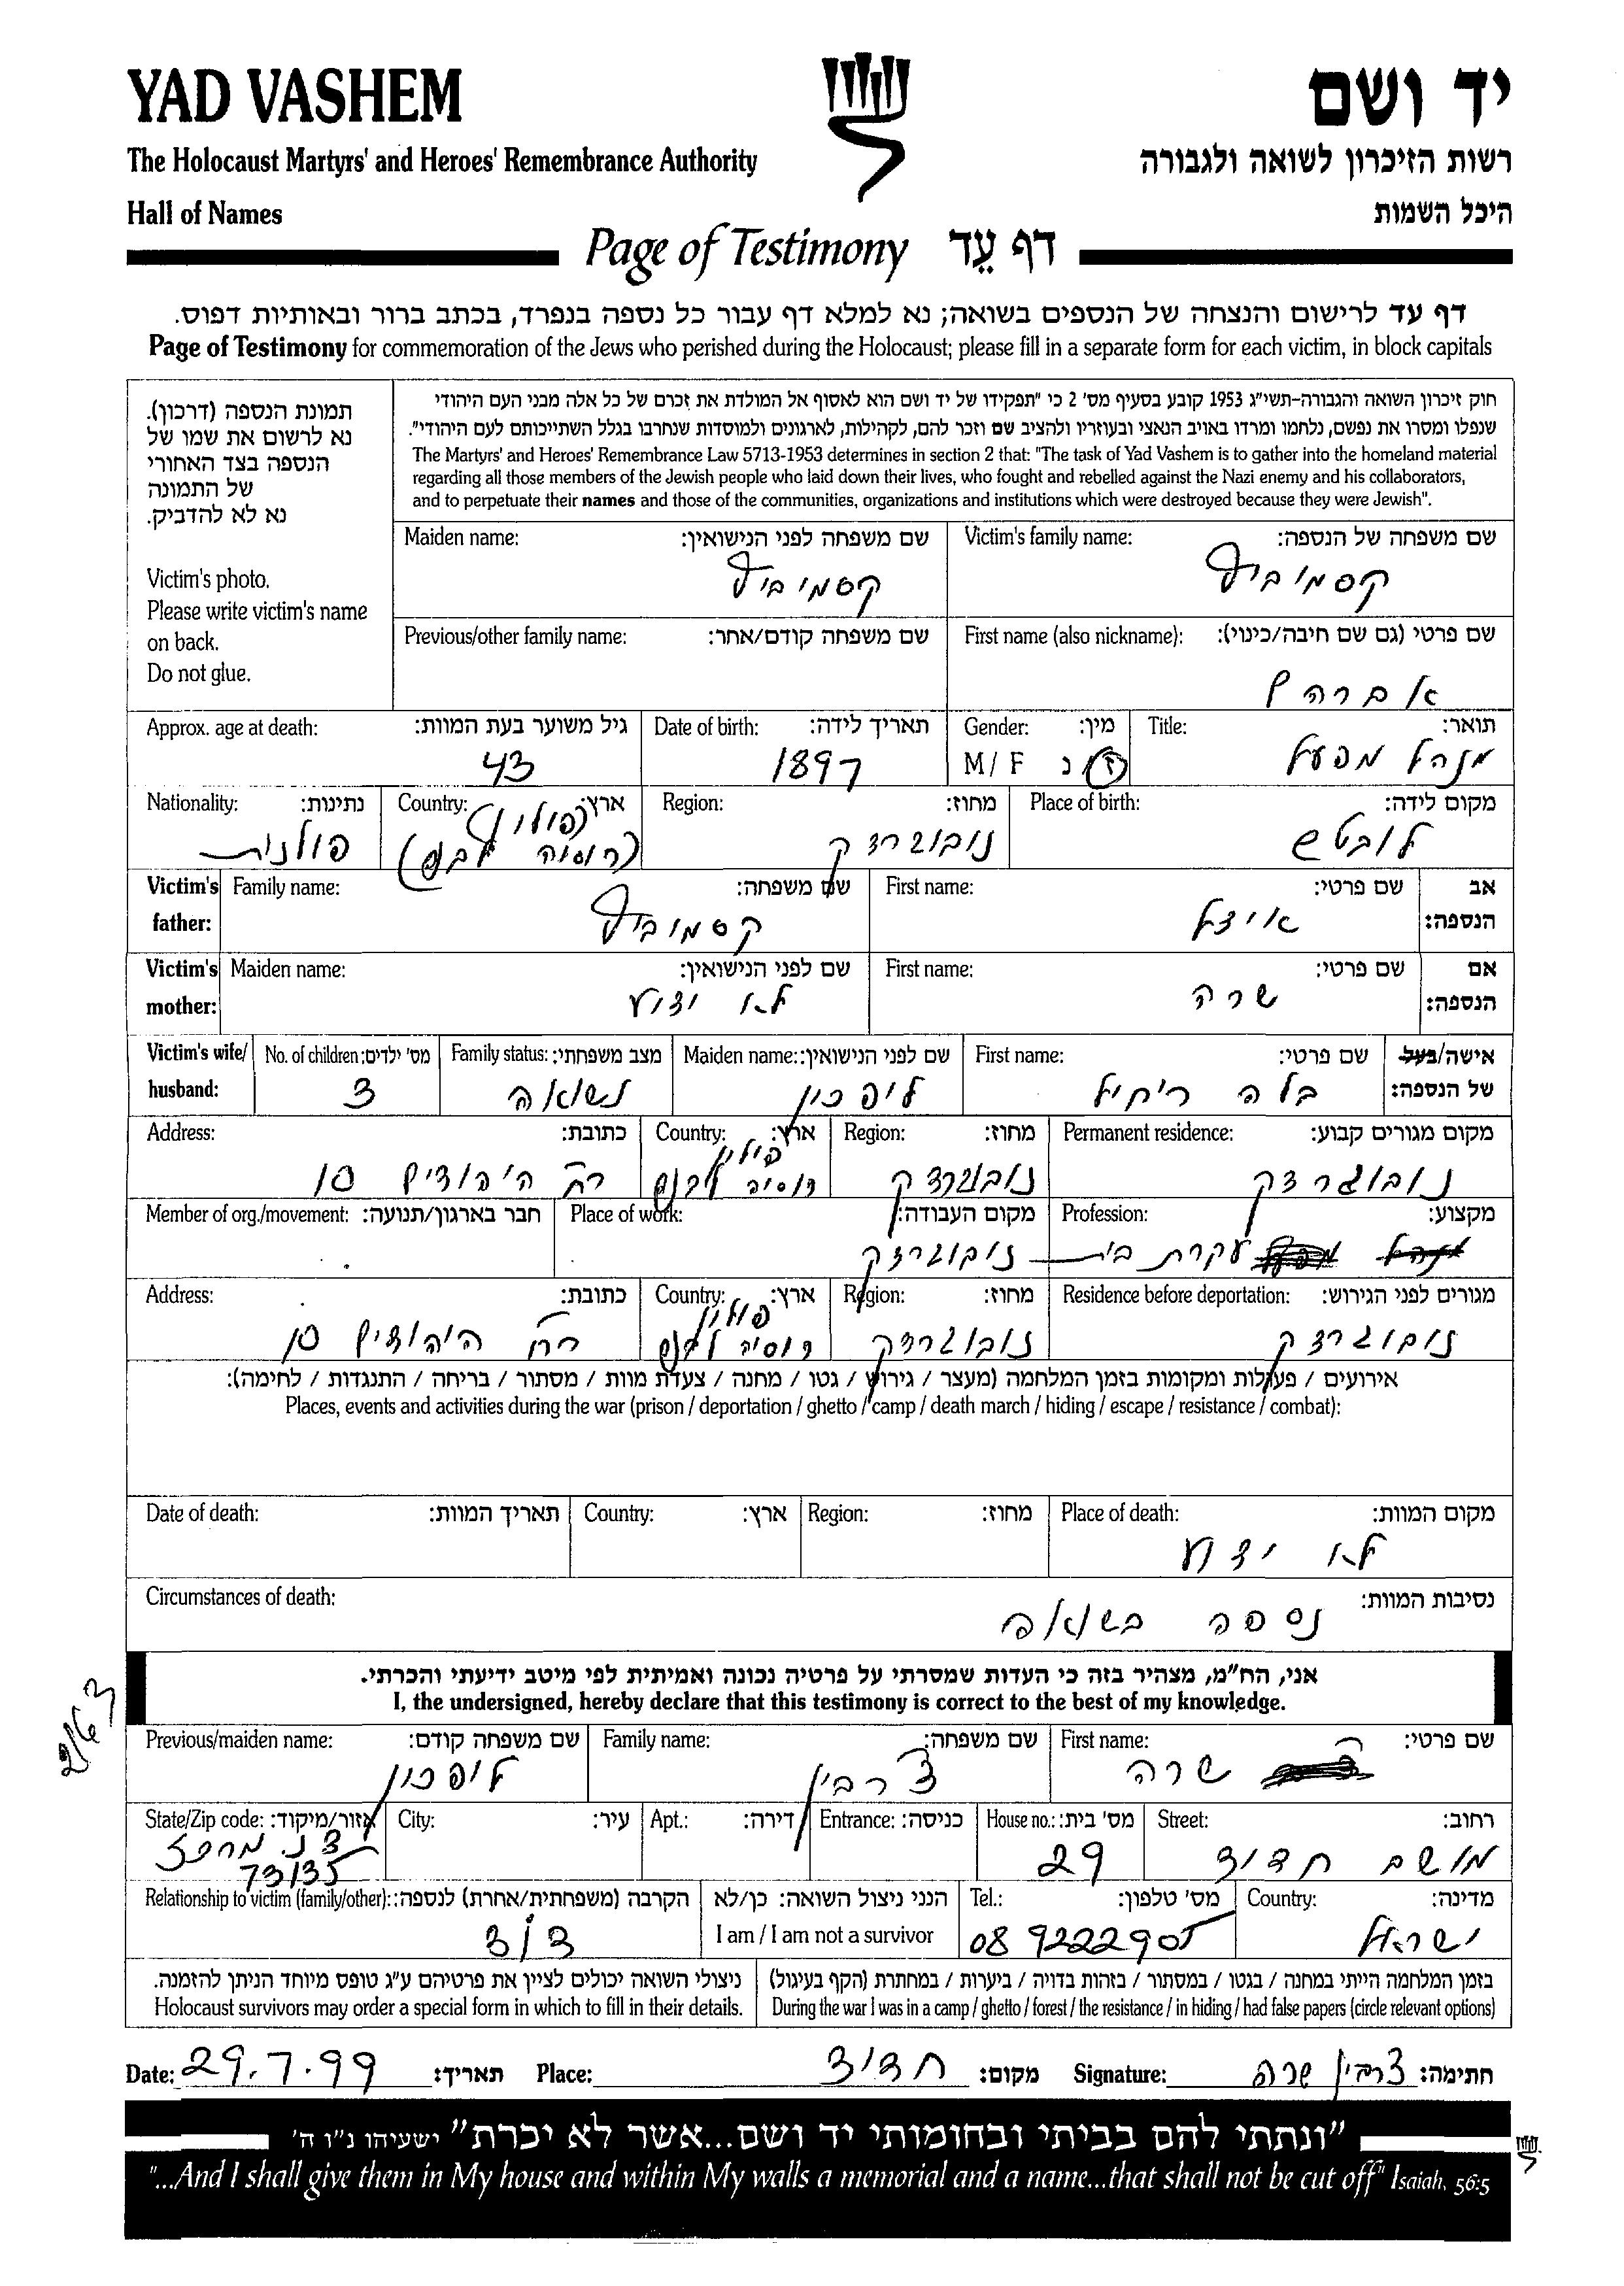 YAD VASHEM
יד ושם
The Holocaust Martyrs' and Heroes' Remembrance Authority
רשות הזיכרון לשואה ולגבורה
Hall of Names
היכל השמות
Page of Testimony דף עֵד
דף עד לרישום והנצחה של הנספים בשואה; נא למלא דף עבור כל נספה בנפרד, בכתב ברור ובאותיות דפוס.
Page of Testimony for commemoration of the Jews who perished during the Holocaust; please fill in a separate form for each victim, in block capitals
תמונת הנספה (דרכון).
נא לרשום את שמו של
הנספה בצד האחורי
של התמונה
נא לא להדביק.
Victim's photo.
Please write victim's name
on back.
Do not glue.
חוק זיכרון השואה והגבורה-תשי"ג 1953 קובע בסעיף מס' 2 כי "תפקידו של יד ושם הוא לאסוף אל המולדת את זכרם של כל אלה מבני העם היהודי
שנפלו ומסרו את נפשם, נלחמו ומרדו באויב הנאצי ובעוזריו ולהציב שם וזכר להם, לקהילות, לארגונים ולמוסדות שנחרבו בגלל השתייכותם לעם היהודי".
The Martyrs' and Heroes' Remembrance Law 5713-1953 determines in section 2 that: "The task of Yad Vashem is to gather into the homeland material
regarding all those members of the Jewish people who laid down their lives, who fought and rebelled against the Nazi enemy and his collaborators,
and to perpetuate their names and those of the communities, organizations and institutions which were destroyed because they were Jewish".
Victim's family name: שם משפחה של הנספה:
קסמוביץ
Maiden name: שם משפחה לפני הנישואין:
קסמוביץ
First name (also nickname): שם פרטי (גם שם חיבה/כינוי):
אברהם
Previous/other family name: שם משפחה קודם/אחר:
Title: תואר:
מנהל מפעל
Gender: מין:
M / F ז נ
Date of birth: תאריך לידה:
1897
Approx. age at death: גיל משוער בעת המוות:
43
Place of birth: מקום לידה:
לובטש
Region: מחוז:
נובוגרדק
Country: ארץ:
(פולין)
(רוסיה לבנה)
Nationality: נתינות:
פולנית
Victim's father: אב הנספה:
First name: שם פרטי:
איצל
Family name: שם משפחה:
קסמוביץ
Victim's mother: אם הנספה:
First name: שם פרטי:
שרה
Maiden name: שם לפני הנישואין:
לא ידוע
Victim's wife/ husband: אישה/בעל של הנספה:
First name: שם פרטי:
בלה ריחל
Maiden name: שם לפני הנישואין:
ליפכין
Family status: מצב משפחתי:
נשואה
No. of children: מס' ילדים:
3
Permanent residence: מקום מגורים קבוע:
נובוגרדק
Region: מחוז:
נובוגרדק
Country: ארץ:
פולין
רוסיה לבנה
Address: כתובת:
רח' היהודים 10
Profession: מקצוע:
מנהל מפעל עקרת בית
Place of work: מקום העבודה:
נובוגרדק
Member of org./movement: חבר בארגון/תנועה:
Residence before deportation: מגורים לפני הגירוש:
נובוגרדק
Region: מחוז:
נובוגרדק
Country: ארץ:
פולין
רוסיה לבנה
Address: כתובת:
רח' היהודים 10
אירועים / פעולות ומקומות בזמן המלחמה (מעצר / גירוש / גטו / מחנה / צעדת מוות / מסתור / בריחה / התנגדות / לחימה):
Places, events and activities during the war (prison / deportation / ghetto / camp / death march / hiding / escape / resistance / combat):
Place of death: מקום המוות:
לא ידוע
Region: מחוז:
Country: ארץ:
Date of death: תאריך המוות:
Circumstances of death: נסיבות המוות:
נספה בשואה
אני, הח"מ, מצהיר בזה כי העדות שמסרתי על פרטיה נכונה ואמיתית לפי מיטב ידיעתי והכרתי.
I, the undersigned, hereby declare that this testimony is correct to the best of my knowledge.
2/63
First name: שם פרטי:
שרה
Family name: שם משפחה:
צ'רבין
Previous/maiden name: שם משפחה קודם:
ליפכין
Street: רחוב:
מושב חדיד
House no.: מס' בית:
29
Entrance: כניסה:
Apt.: דירה:
City: עיר:
State/Zip code: אזור/מיקוד:
ד.נ. מרכז
73135
Country: מדינה:
ישראל
Tel.: מס' טלפון:
08 9222905
הנני ניצול השואה: כן/לא
I am / I am not a survivor
Relationship to victim (family/other): הקרבה (משפחתית/אחרת) לנספה:
דוד
בזמן המלחמה הייתי במחנה / בגטו / במסתור / בזהות בדויה / ביערות / במחתרת (הקף בעיגול)
During the war I was in a camp / ghetto / forest / the resistance / in hiding / had false papers (circle relevant options)
ניצולי השואה יכולים לציין את פרטיהם ע"ג טופס מיוחד הניתן להזמנה.
Holocaust survivors may order a special form in which to fill in their details.
Date: 29.7.99 תאריך: Place: חדיד מקום: Signature: צרבין שרה חתימה:
"ונתתי להם בביתי ובחומותי יד ושם...אשר לא יכרת" ישעיהו נ"ו ה'
"...And I shall give them in My house and within My walls a memorial and a name...that shall not be cut off" Isaiah, 56:5